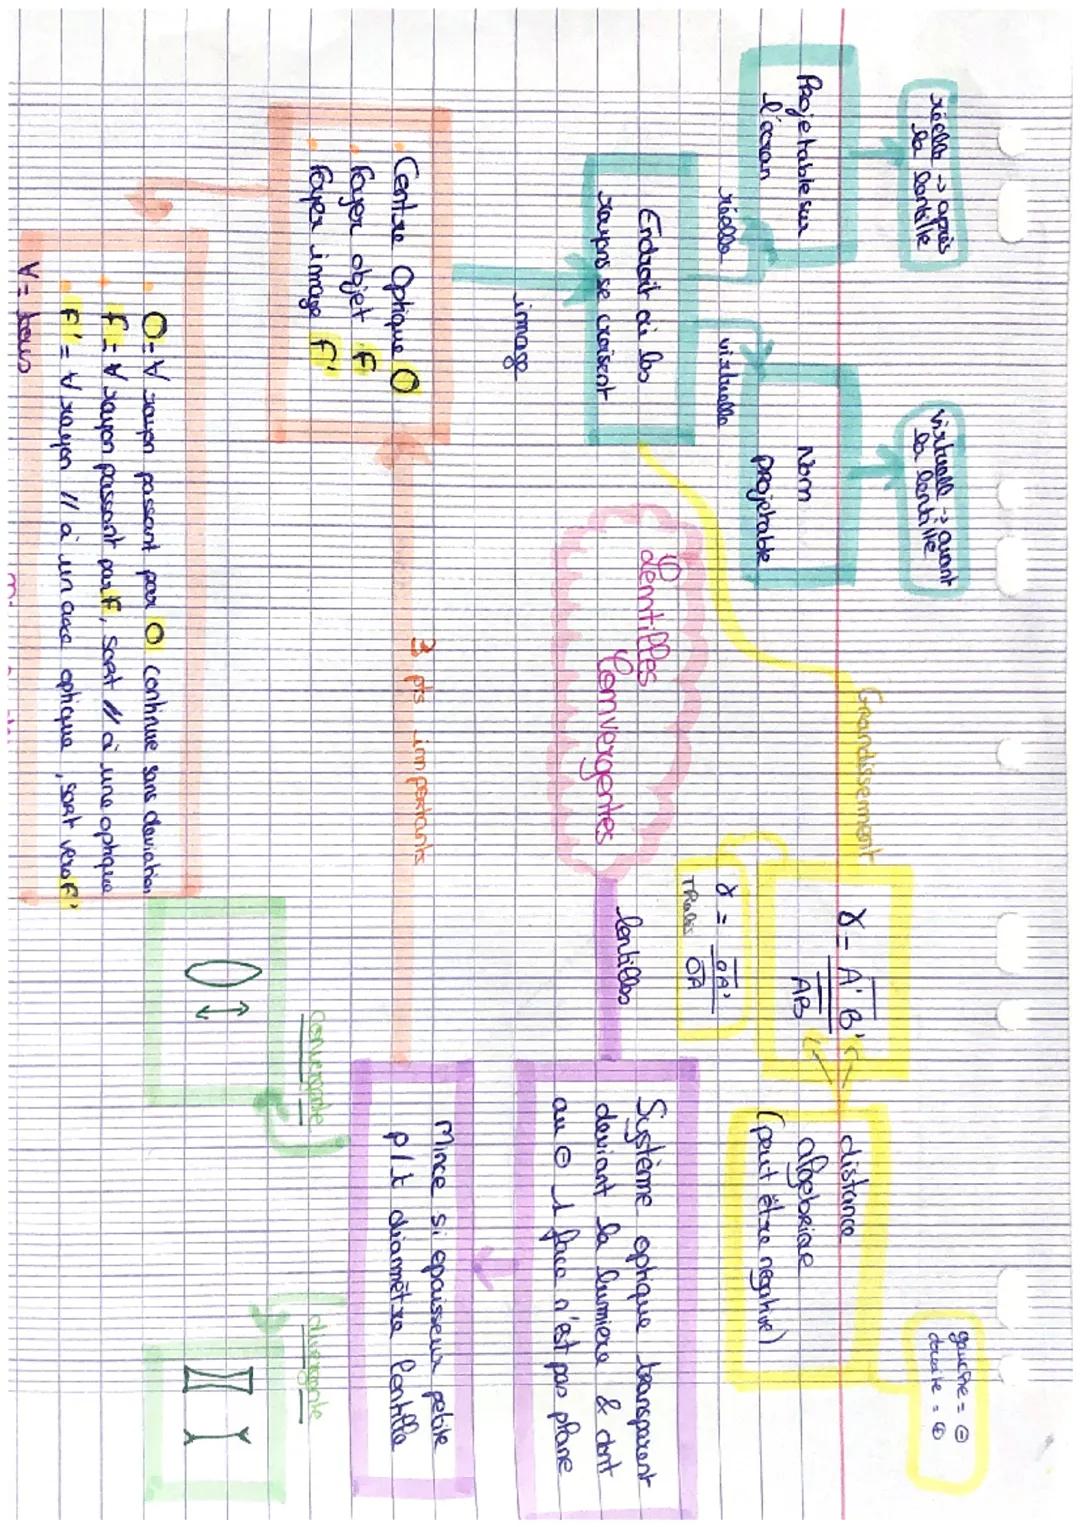 réelle → après
la lentille
virtuelle → avant
la lentille
gauche = ⊖
droite = ⊕
Projetable sur
l'écran
Non
projetable
Grandissement
γ = A'B'
AB
distance
algébrique
(peut être négative)
réelle
virtuelle
γ = OA'
OA
Endroit où les
rayons se croisent
Lentilles
Convergentes
lentilles
Système optique transparent
deviant la lumière & dont
au ⊖ 1 face n'est pas plane
image
Centre Optique O
foyer objet F
foyer image F'
3 pts importants
Mince si epaisseur petite
p/t diamètre lentille
convergente
divergente
O = ∀ rayon passant par O continue sans deviation
F = ∀ rayon passant par F, sort // à une optique
F' = ∀ rayon // à un axe optique, sort vers F'
∀ = tous